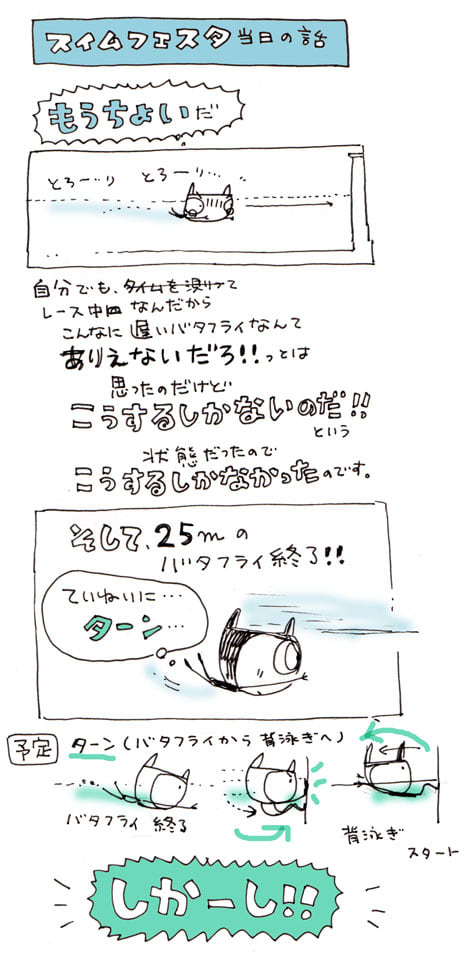 スイムフェスタ当日の話
もうちょいだ
とろーーり とろーり…
自分でも、
レース中 なんだから
こんなに 遅いバタフライなんて
ありえないだろ!!っとは
思ったのだけど
こうするしかないのだ!!
という
状態だったので
こうするしかなかったのです。
そして、25mの
バタフライ終了!!
ていねいに…
ターン…
予定 ターン(バタフライから背泳ぎへ)
バタフライ 終了
背泳ぎ
スタート
しかーし!!